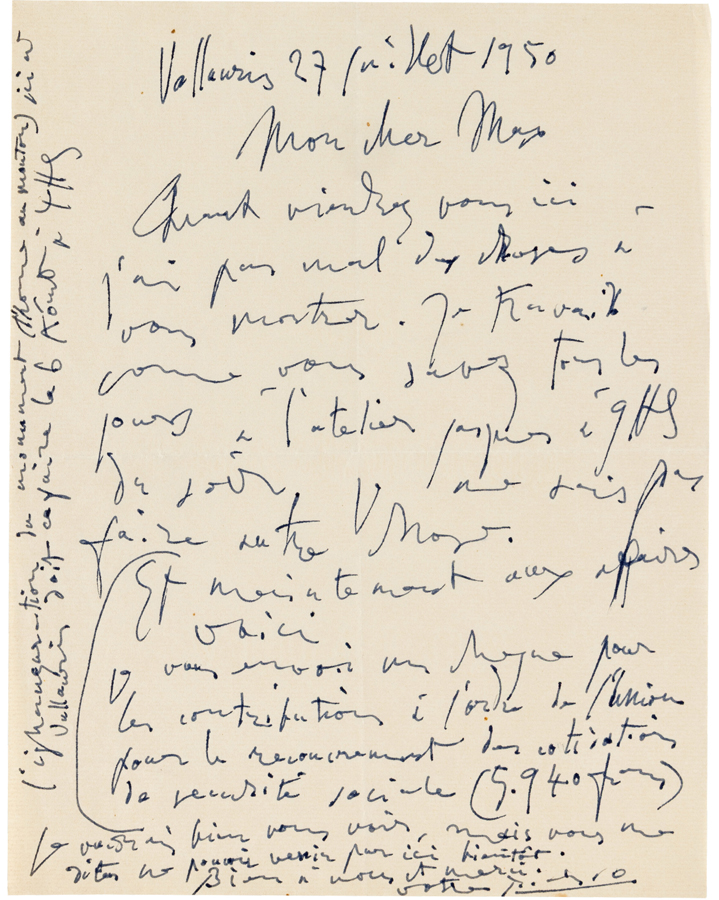 Vallauris 27 juillet 1950
Mon cher Max
Quant viendrez vous ici
j'ai pas mal des choses à
vous montrer. Je travaille
comme vous savez tous les
jours à l'atelier jusques à 9HS
du soir. Je ne sais pas
faire autre chose.
Et maintenant aux affaires
voici
Je vous envoi un cheque pour
les contributions à l'ordre de l'Union
pour le recouvrement des cotisations
de securité sociale (5.940 francs)
Je voudrais bien vous voir, mais vous me
dites ne pouvoir venir par ici bientôt.
Bien à vous et merci.
votre Picasso
l'ighanguration du monument (l'homme au mouton) ici à
Vallauris doit ce faire le 6 Août à 4HS